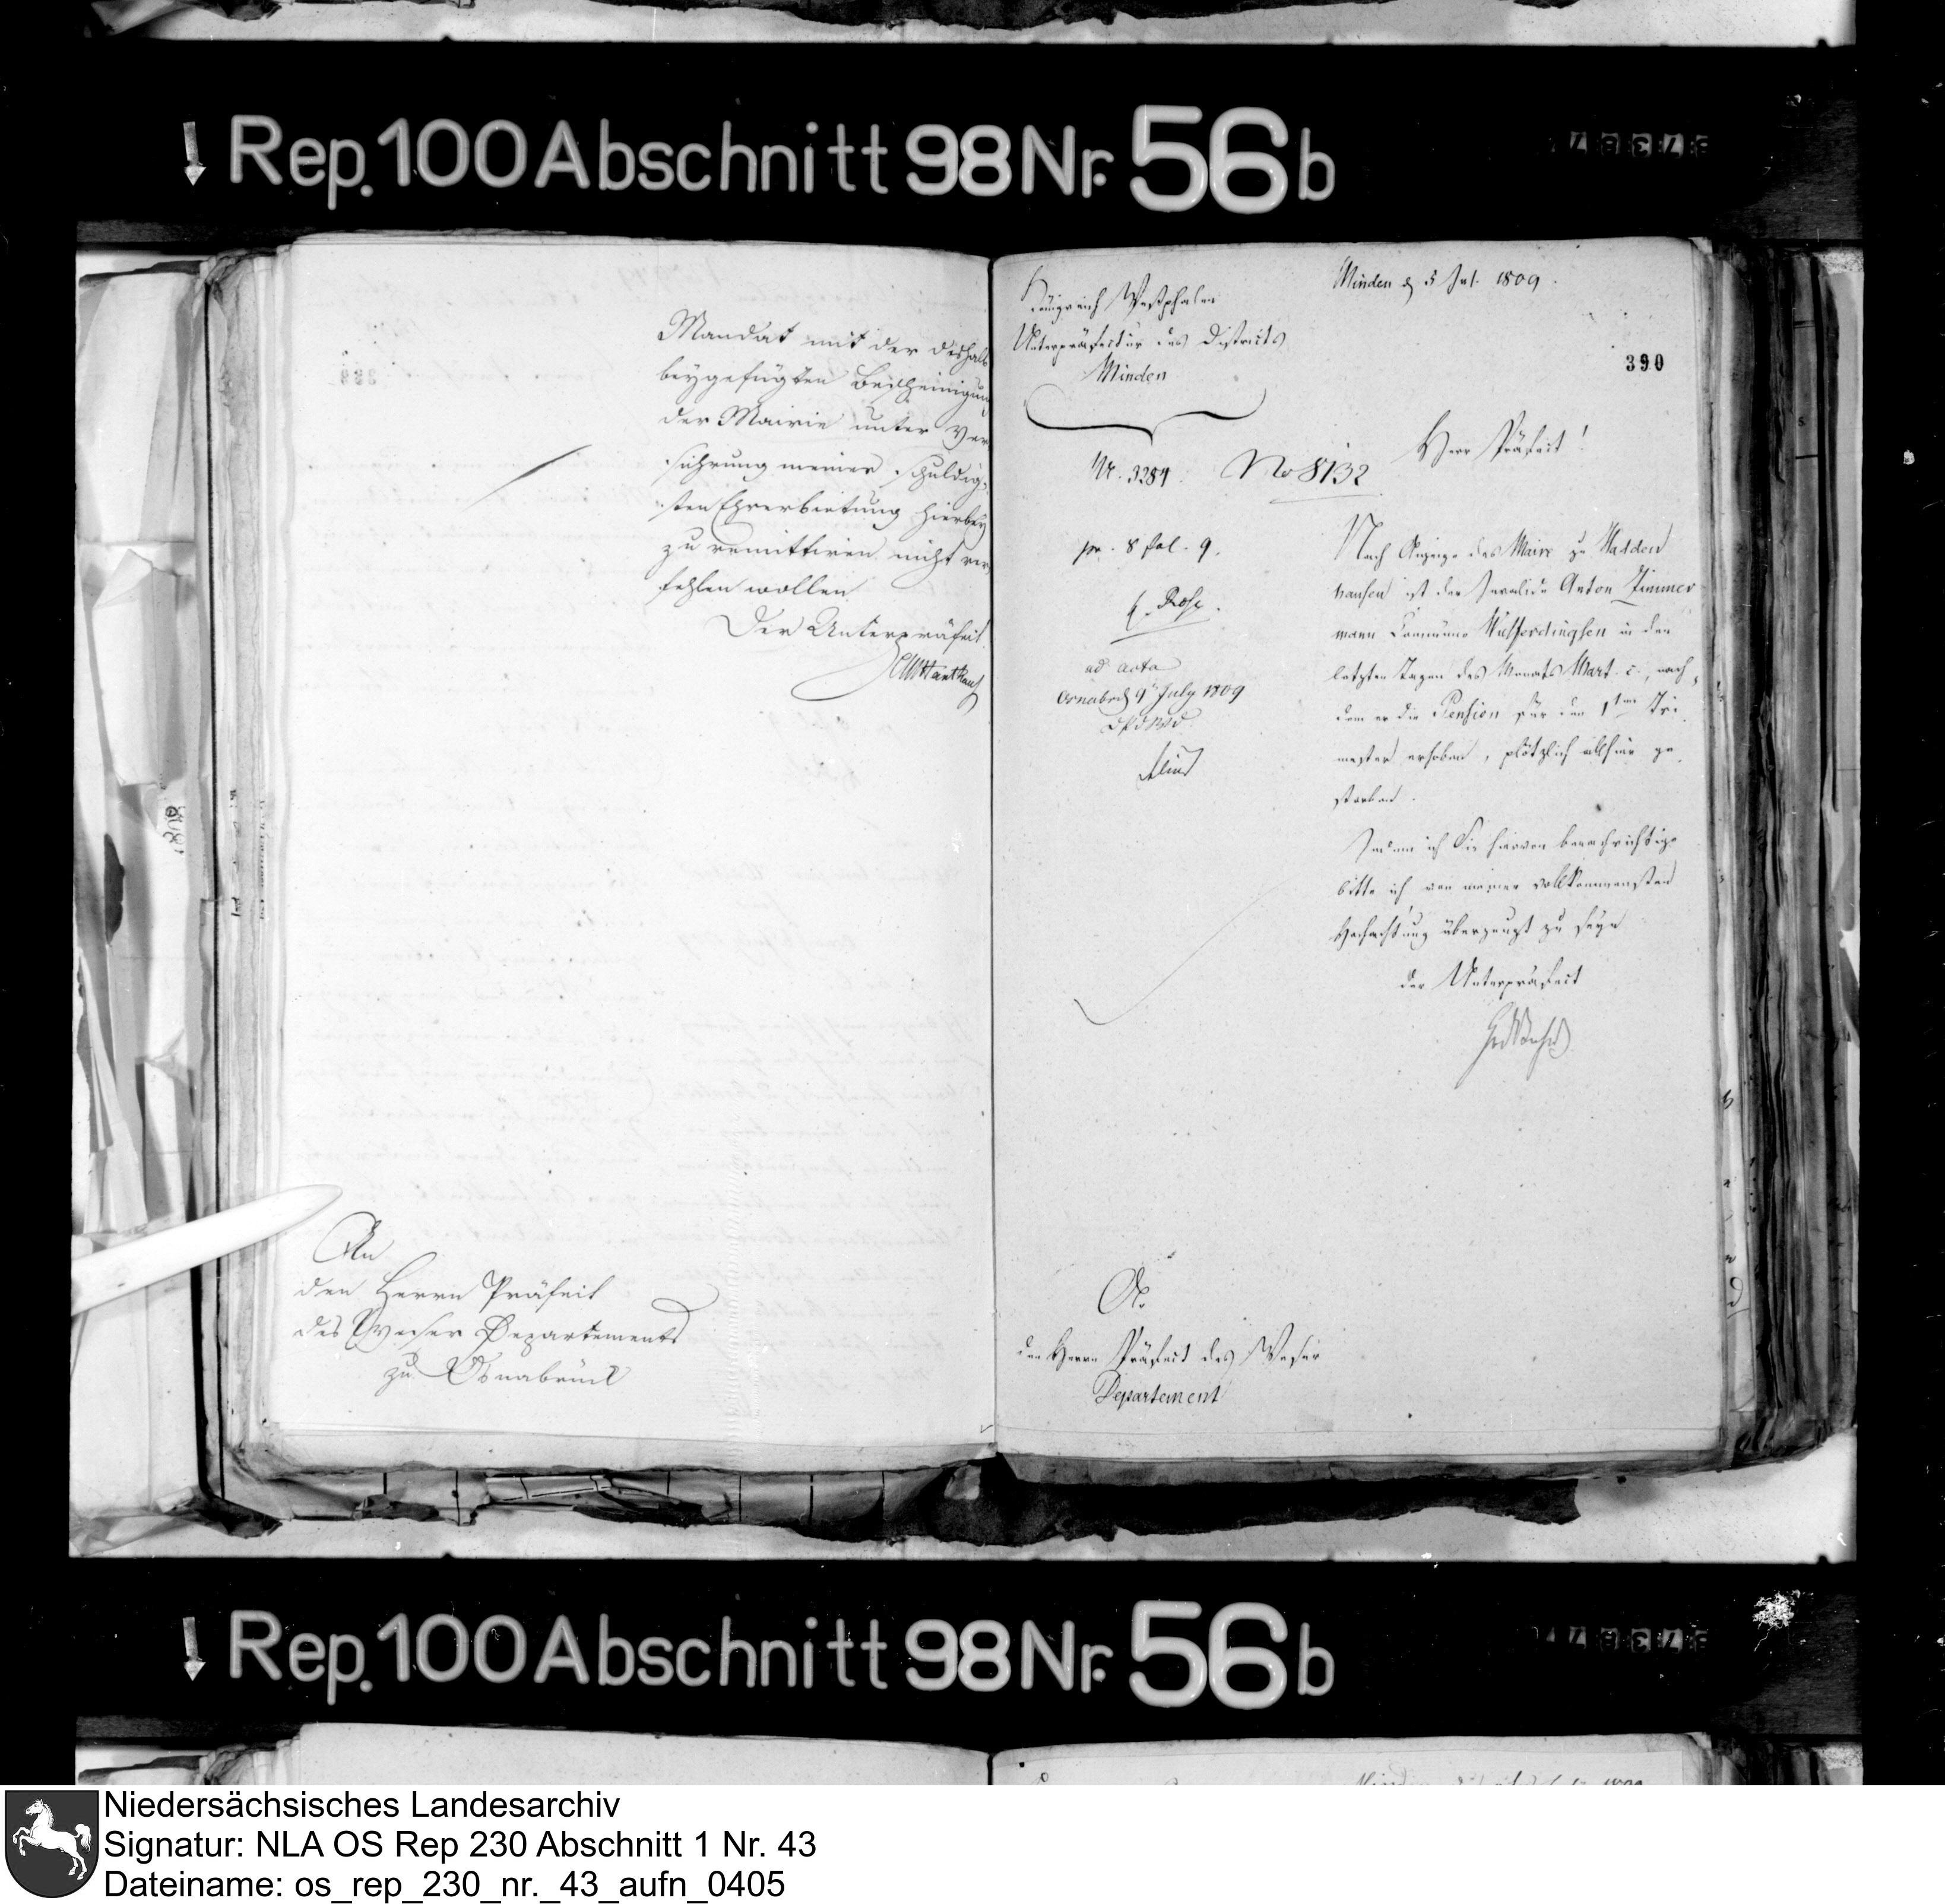 Rep. 100 Abschnitt 98 Nr. 56 b
Mandat mit der deshalb
beygefügten Bescheinigung
der Mairie unter Ver
sicherung meiner schuldig-
sten Ehrerbietung hierbey
zu remittiren nicht ver
fehlen wollen
Der Unterpräfect
An
den Herrn Präfect
des Weser Departements
zu Osnabrück
Königreich Westphalen
Unterpräfectur des Districts
Minden
Minden d 5 Jul. 1809.
390
Nr. 3284.
No 8132
Herr Präfect!
pr. 8 Jul. 9.
ad acta
Osnabrck 9t July 1809
Nach Anzeige des Maire zu Hadden
hausen ist der Invalide Anton Zimmer
mann Commune Wulferdingsen in den
letzten Tagen des Monats Mart. c., nach
dem er die Pension für den 1ten Tri
mester erhoben, plötzlich allhier ge
storben.
Indem ich Sie hievon benachrichtige
bitte ich von meiner vollkommensten
Hochachtung überzeugt zu seyn
der Unterpräfect
An
den Herrn Präfect des Weser
Departement
Rep. 100 Abschnitt 98 Nr. 56 b
Niedersächsisches Landesarchiv
Signatur: NLA OS Rep 230 Abschnitt 1 Nr. 43
Dateiname: os_rep_230_nr._43_aufn_0405